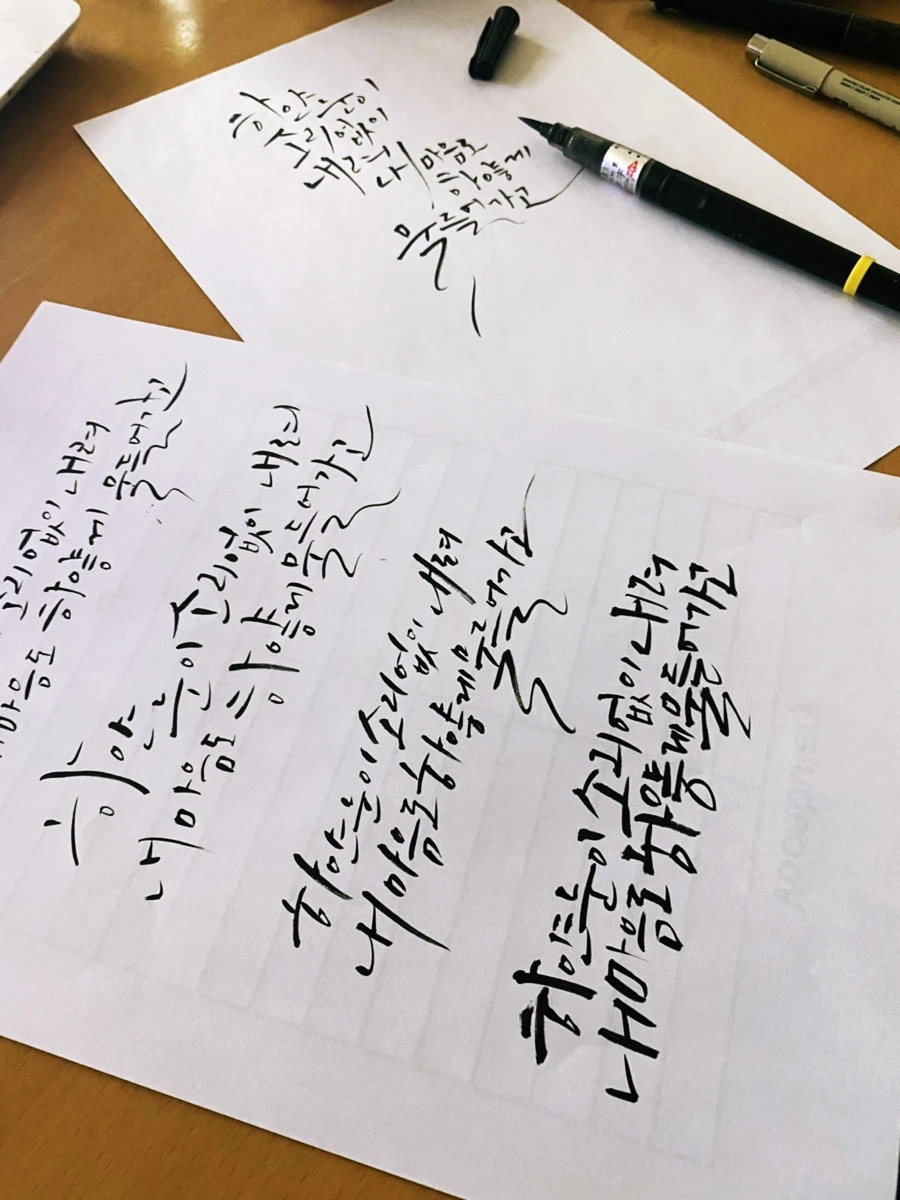 하얀눈이
소리없이
내려
내마음도
하얗게
물들어가고
소리없이 내려
마음도 하얗게 물들어가고
하얀눈이 소리없이 내려
내마음도 하얗게 물들어가고
하얀눈이 소리없이 내려
내마음도 하얗게 물들어가고
하얀눈이 소리없이 내려
내마음도 하얗게 물들어가고